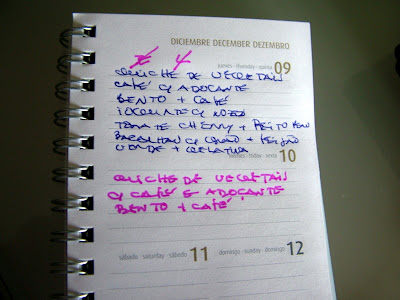 DICIEMBRE DECEMBER DEZEMBRO
jueves · thursday · quinta 09
QUICHE DE VEGETAIS
CAFÉ C/ ADOÇANTE
BENTO + CAFÉ
TOMATE CHERRY + PEITO
BACALHAU C/ GRÃO + FEIJÃO
VERDE + GELATINA
viernes · friday · sexta 10
QUICHE DE VEGETAIS
C/ CAFÉ E ADOÇANTE
BENTO + CAFÉ
sábado · saturday · sábado 11
domingo · sunday · domingo 12